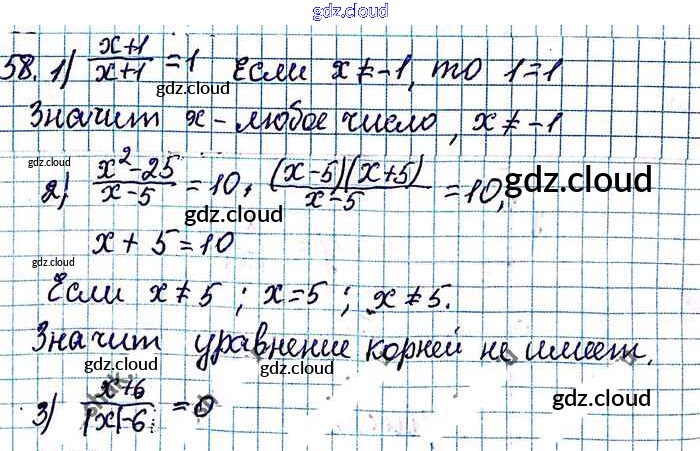 gdz.cloud
58. 1) (x+1)/(x+1) = 1 Если x ≠ -1, то 1 = 1
gdz.cloud
gdz.cloud
Значит x - любое число, x ≠ -1
gdz.cloud
gdz.cloud
2) (x² - 25)/(x - 5) = 10, ((x-5)(x+5))/(x-5) = 10,
gdz.cloud
gdz.cloud
x + 5 = 10
gdz.cloud
gdz.cloud
Если x ≠ 5 ; x = 5 ; x ≠ 5.
gdz.cloud
Значит уравнение корней не имеет.
gdz.cloud
gdz.cloud
3) (x+6)/(|x|-6) = 0
gdz.cloud
gdz.cloud